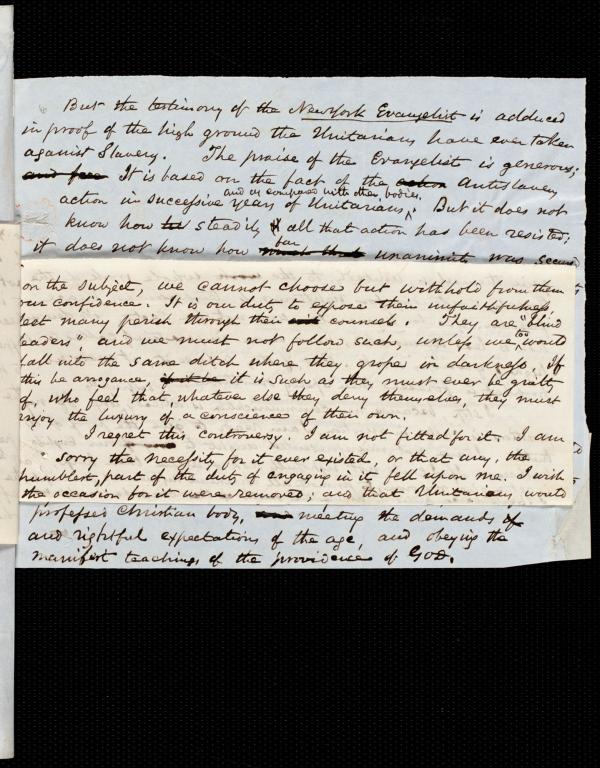 But the testimony of the New York Evangelist is adduced
in proof of the high ground the Unitarians have ever taken
against Slavery. The praise of the Evangelist is generous;
It is based on the fact of the Antislavery
and as compared with other bodies.
action in successive years of Unitarians, But it does not
know how steadily all that action has been resisted;
far
it does not know how unanimity was
on the subject, we cannot choose but withhold from them
our confidence. It is our duty to expose their unfaithfulness,
lest many perish through their counsels. They are "blind
leaders", and we must not follow such, unless we, too, would
fall into the same ditch where they grope in darkness. If
this be arrogance, it is such as they must ever be guilty
of, who feel that, whatever else they deny themselves, they must
enjoy the luxury of a conscience of their own.
I regret this controversy. I am not fitted for it. I am
sorry the necessity for it ever existed, or that any, the
humblest, part of the duty of engaging in it fell upon me. I wish
the occasion for it were removed; and that Unitarians would
professed Christian body, meeting the demands
and rightful expectations of the age, and obeying the
manifest teachings of the providence of God.